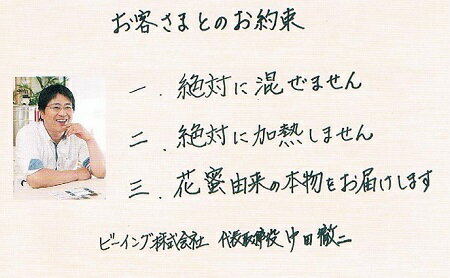 お客さまとのお約束
一．絶対に混ぜません
二．絶対に加熱しません
三．花蜜由来の本物をお届けします
ビーイング株式会社 代表取締役 中田徹二